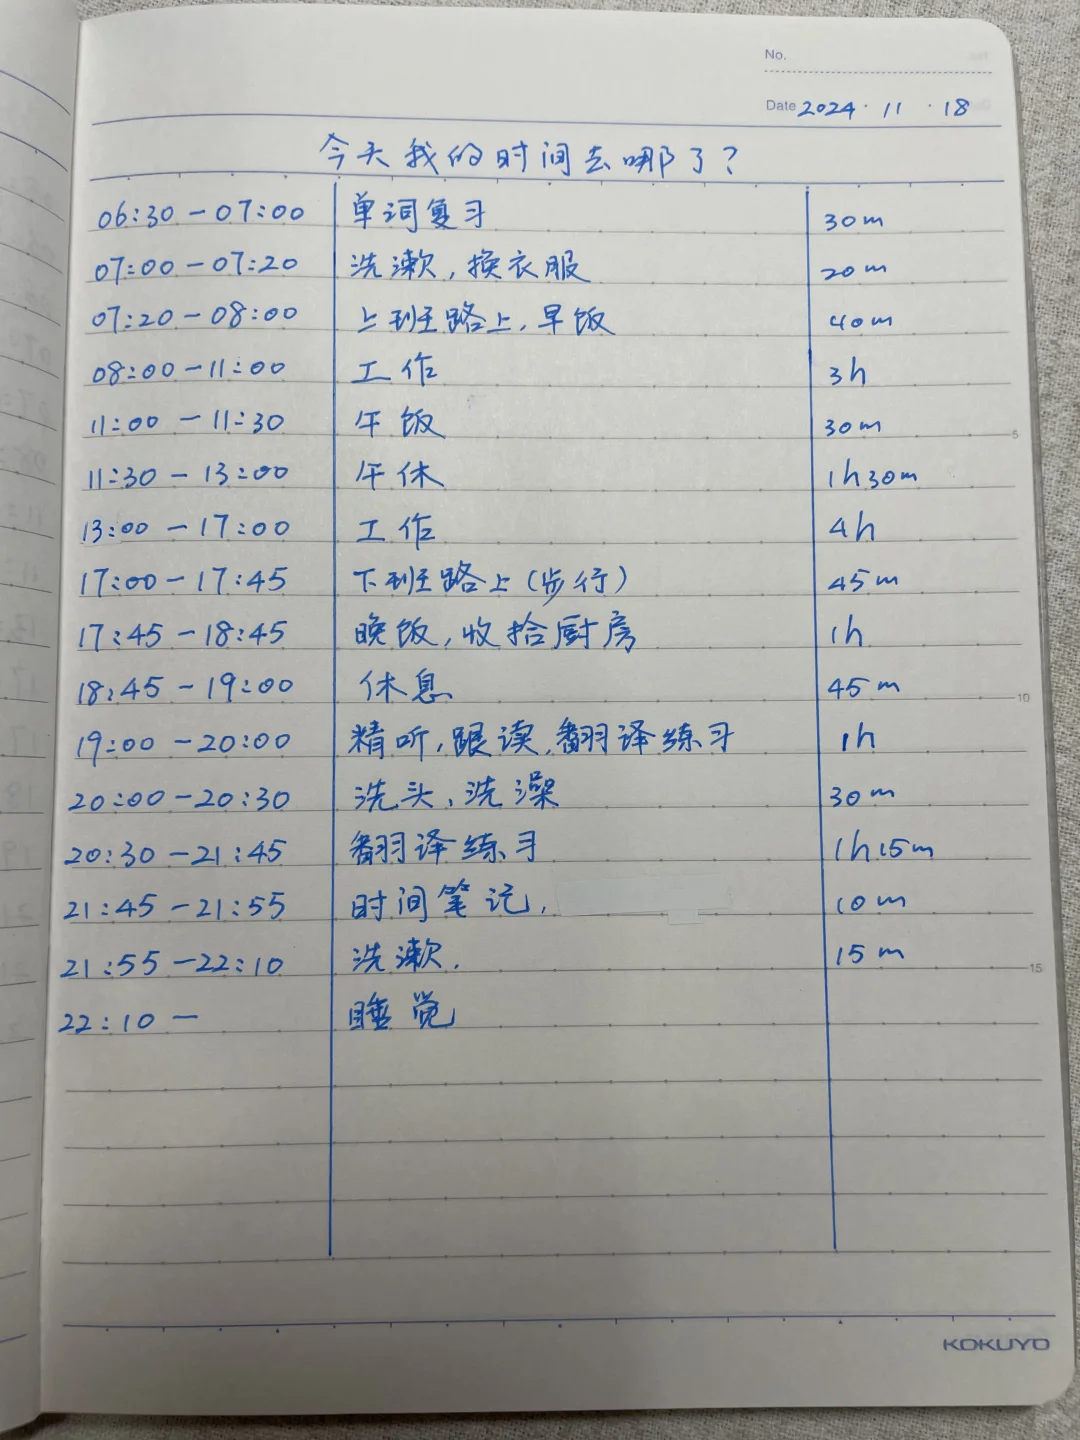 No.
Date 2024 · 11 · 18
今天我的时间去哪了?
06:30 - 07:00 单词复习 30m
07:00 - 07:20 洗漱, 换衣服 20m
07:20 - 08:00 上班路上, 早饭 40m
08:00 - 11:00 工作 3h
11:00 - 11:30 午饭 30m
11:30 - 13:00 午休 1h30m
13:00 - 17:00 工作 4h
17:00 - 17:45 下班路上(步行) 45m
17:45 - 18:45 晚饭, 收拾厨房 1h
18:45 - 19:00 休息 45m
19:00 - 20:00 精听, 跟读, 翻译练习 1h
20:00 - 20:30 洗头, 洗澡 30m
20:30 - 21:45 翻译练习 1h15m
21:45 - 21:55 时间笔记, 10m
21:55 - 22:10 洗漱. 15m
22:10 - 睡觉
5
10
15
KOKUYO